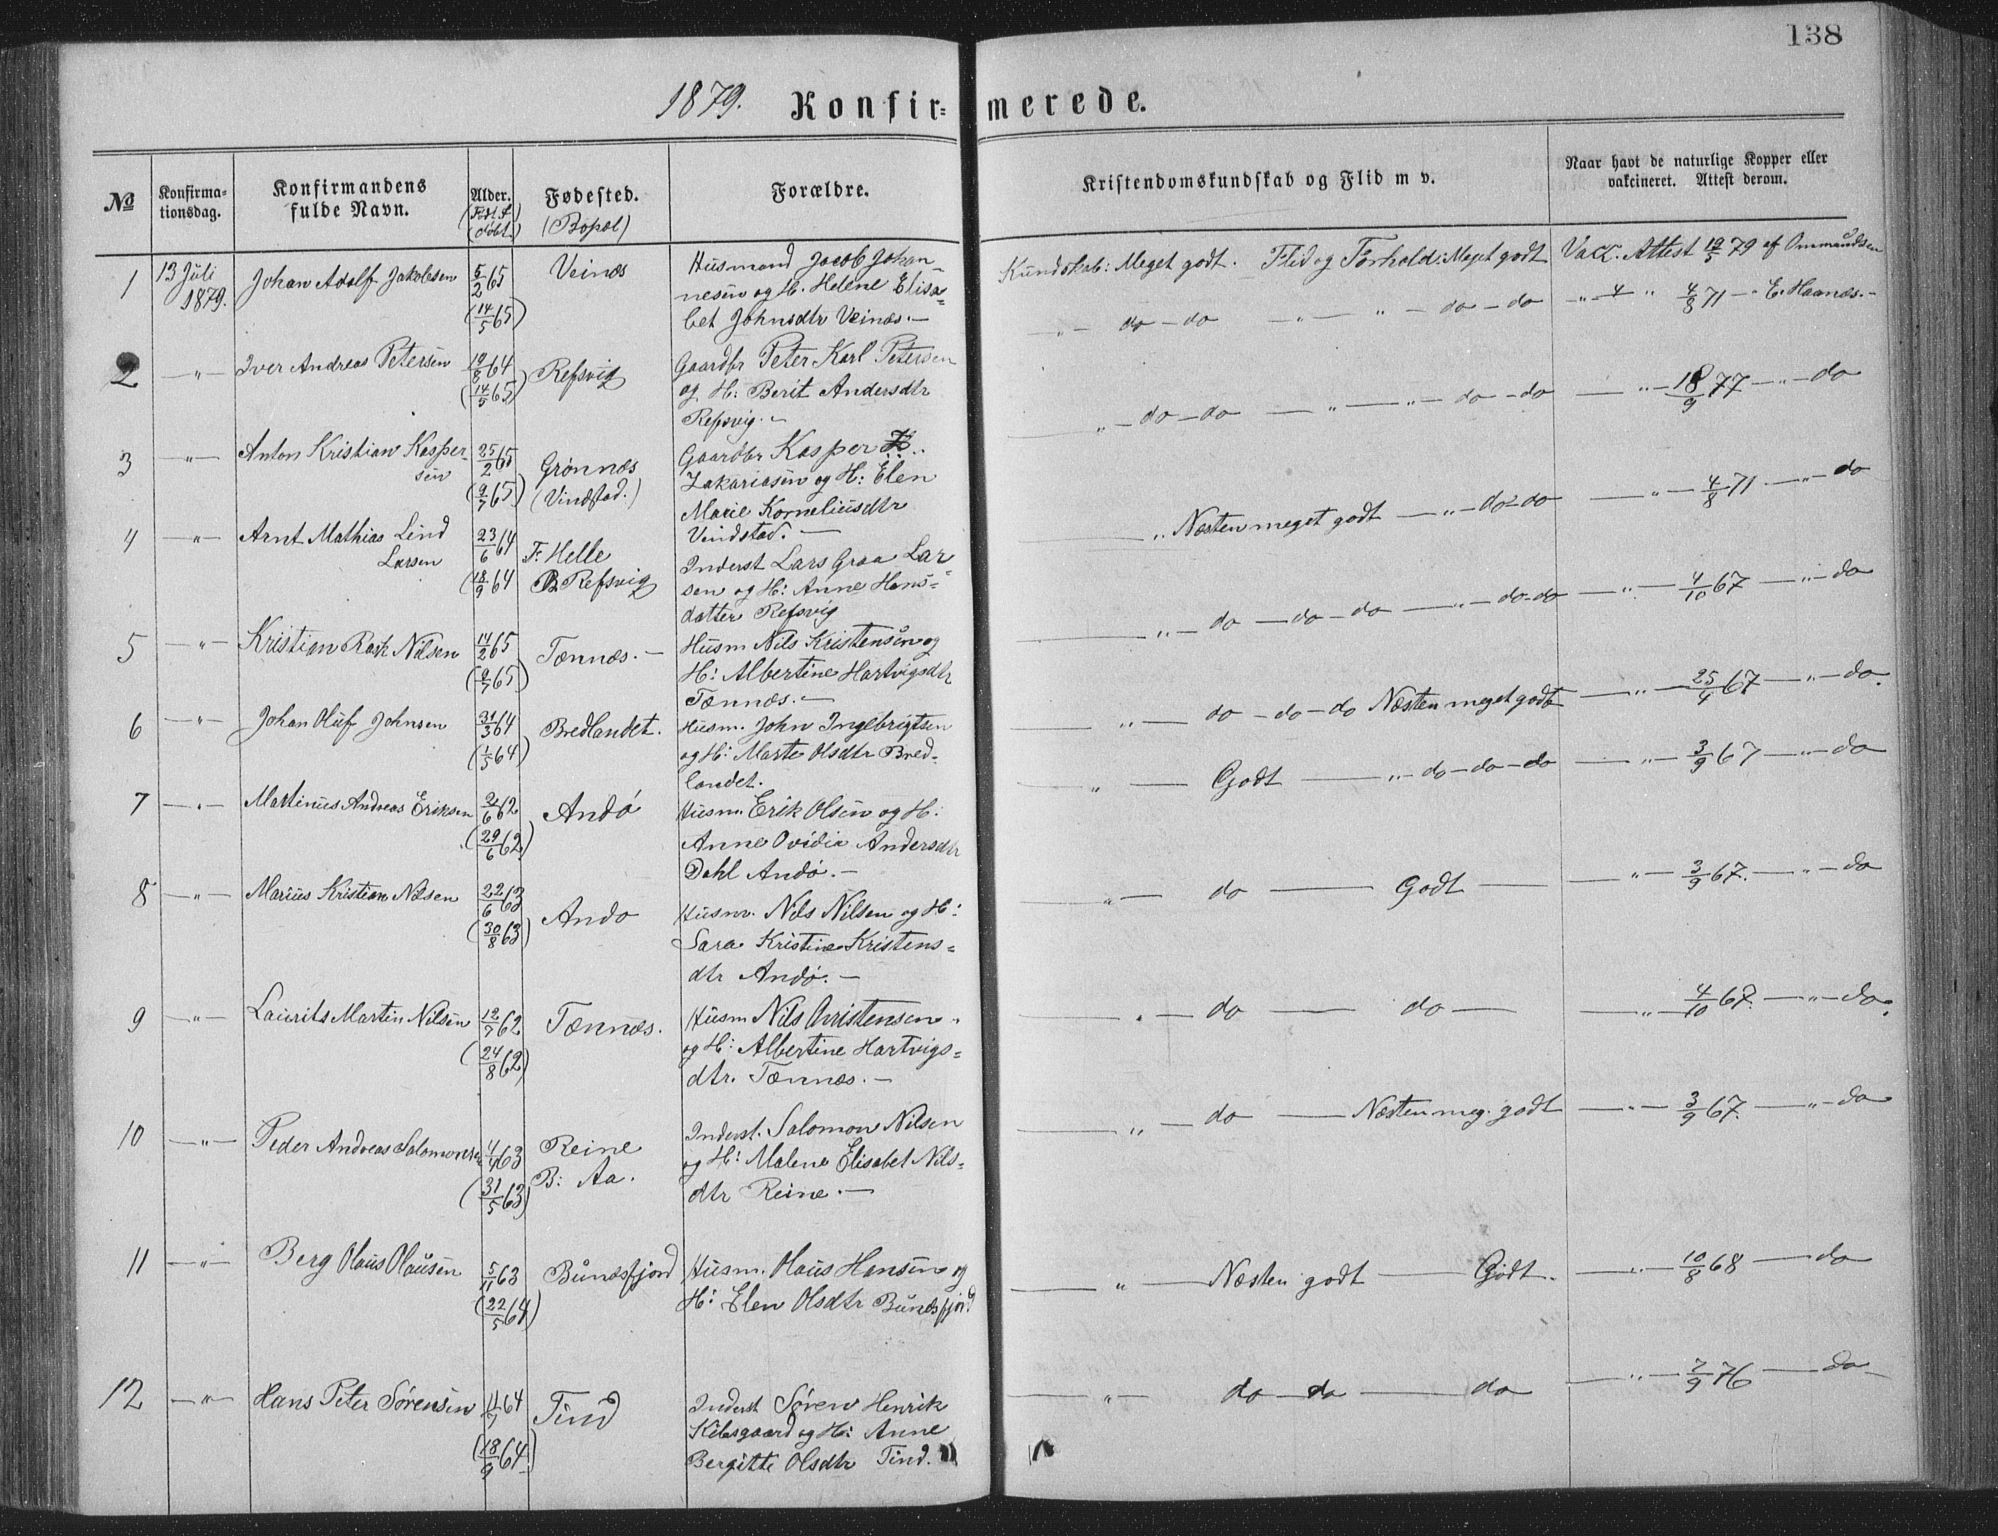 138
1879. Konfirmerede.
№
Konfirmationsdag.
Konfirmandens fulde Navn.
Alder. (Født & døbt.)
Fødested. (Bopæl)
Forældre.
Kristendomskundskab og Flid m v.
Naar havt de naturlige Kopper eller vakcineret. Attest derom.
1 13 Juli 1879. Johan Adolf Jakobsen 5/2 65 (14/5 65) Veinæs
Husmand Jacob Johan-
nesen og H. Helene Elisa-
bet Johnsdtr Veinæs.—
Kundskab: Meget godt. Flid og Forhold: Meget godt Vacc. Attest 79 af Ommundsen
2 —"— Iver Andreas Petersen 19/8 64 (14/5 65) Refsvig
Gaardbr Peter Karl Petersen
og H: Berit Andersdtr
Refsvig.—
—"— do—do —"— " — do—do —"— 4/8 71 —" E. Haanæs.—
3 —"— Anton Kristian Kasper-
sen 25/2 65 (9/7 65) Grønnæs (Vindstad.)
Gaardbr Kasper
Zakariasen og H: Elen
Marie Korneliusdtr
Vindstad.—
—"—do—do —"—"—do—do —"— 18/9 77 —"—do
4 —"— Arnt Mathias Lind
Larsen 23/6 64 (18/9 64 F. Helle
B. Refsvig
Inderst Lars Graa Lar-
sen og H: Anne Hans-
datter Refsvig
—" Næsten meget godt —"—do—do —"— 4/8 71. —"—do
5 —"— Kristian Rask Nilsen 14/2 65 (9/7 65) Tennæs.—
Husm Nils Kristensen og
H: Albertine Hartvigsdtr
Tennæs.—
—"— do —do—do —"—do—do —"— 4/10 67 —"—do
6 —"— Johan Oluf Johnsen 31/3 64 (1/5 64) Bredlandet.
Husm. John Ingebrigtsen
og H: Marte Olsdtr Bred-
landet.
—"— do —do—do Næsten meget godt —"— 25/4 67 —"—do.
7 —"— Martinus Andreas Eriksen 2/6 62 (29/6 62) Andø
Husm. Erik Olsen og H:
Anne Ovidia Andersdtr
Dahl Andø.—
—"— Godt —"—do—do—do —"— 3/9 67 —"—do
8 —"— Marius Kristian Nilsen 22/6 63 (30/8 63) Andø
Husm. Nils Nilsen og H:
Sara Kristine Kristens-
dtr Andø.—
—"— do — Godt —"— 3/9 67. —"—do
9 —"— Laurits Martin Nilsen 12/7 62 (24/8 62) Tennæs.
Husm Nils Christensen
og H: Albertine Hartvigs-
dtr. Tennæs.—
—"— do — do —"— 4/10 67. —"—do.
10 —"— Peder Andreas Salomonsen 4/4 63 (31/5 63) Reine
B: Aa.
Inderst. Salomon Nilsen
og H: Malene Elisabet Nils-
dtr Reine.—
—"— do — Næsten meg. godt —"— 3/9 67. —"—do
11 —"— Berg Olaus Olausen 5/11 63 (22/5 64) Bunæsfjord
Husm. Olaus Hansen og
H: Elen Olsdtr Bunæsfjord
—"— Næsten godt — Godt. —"— 10/8 68 —do
12 —"— Hans Peter Sørensen 11/7 64 (18/9 64) Tind
Inderst Søren Henrik
Kilsgaard og H: Anne
Bergitte Olsdtr Tind.
—"— do—do — do —"— 7/9 76 —do